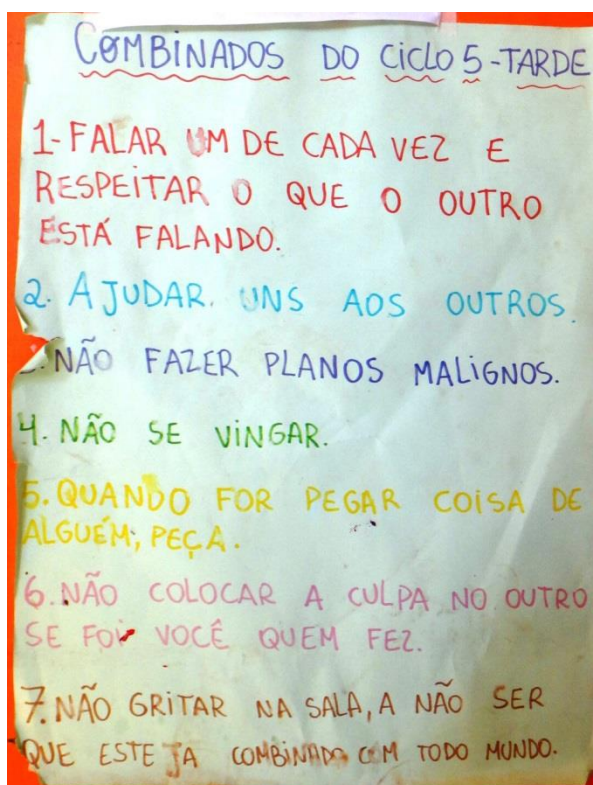 COMBINADOS DO CICLO 5-TARDE
1-FALAR UM DE CADA VEZ E
RESPEITAR O QUE O OUTRO
ESTÁ FALANDO.
2. AJUDAR. UNS AOS OUTROS.
NÃO FAZER PLANOS MALIGNOS.
4. NÃO SE VINGAR.
5. QUANDO FOR PEGAR COISA DE
ALGUÉM, PEÇA.
6. NÃO COLOCAR A CULPA NO OUTRO
SE FOI VOCÊ QUEM FEZ.
7. NÃO GRITAR NA SALA, A NÃO SER
QUE ESTEJA COMBINADO COM TODO MUNDO.